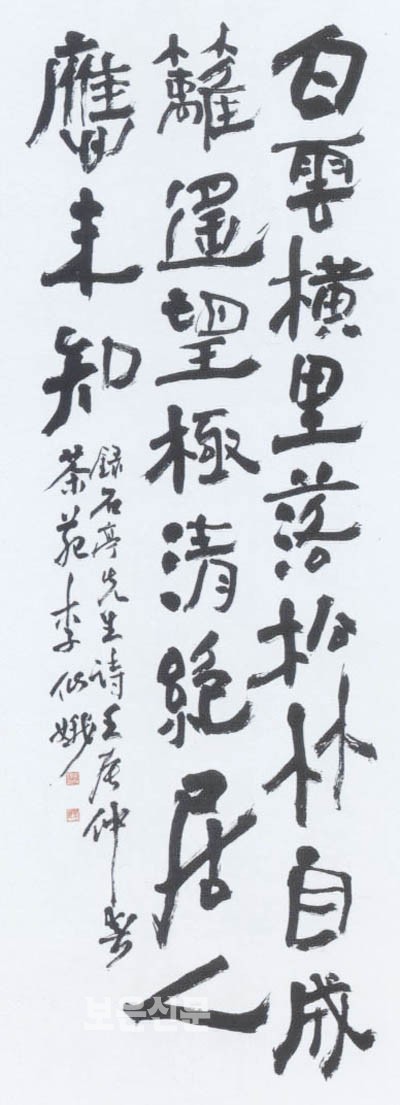 白雲橫里落松林自成
籬遥望極清絶居人
應未知
錄石亭先生詩壬辰仲春
茶苑李娥
보은신문